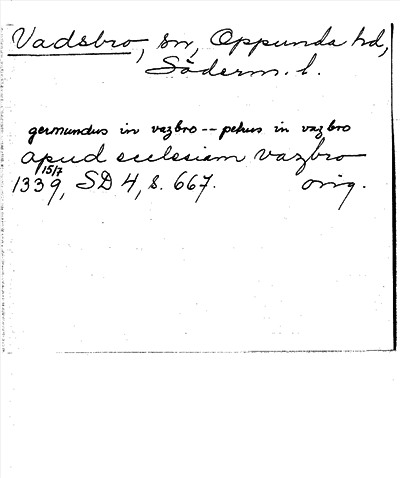 Vadsbro, sn, Oppunda hd,
Söderm. l.
germundus in vazbro -- petrus in vazbro
apud ecclesiam vazbro
15/7
1339, SD 4, s. 667. orig.